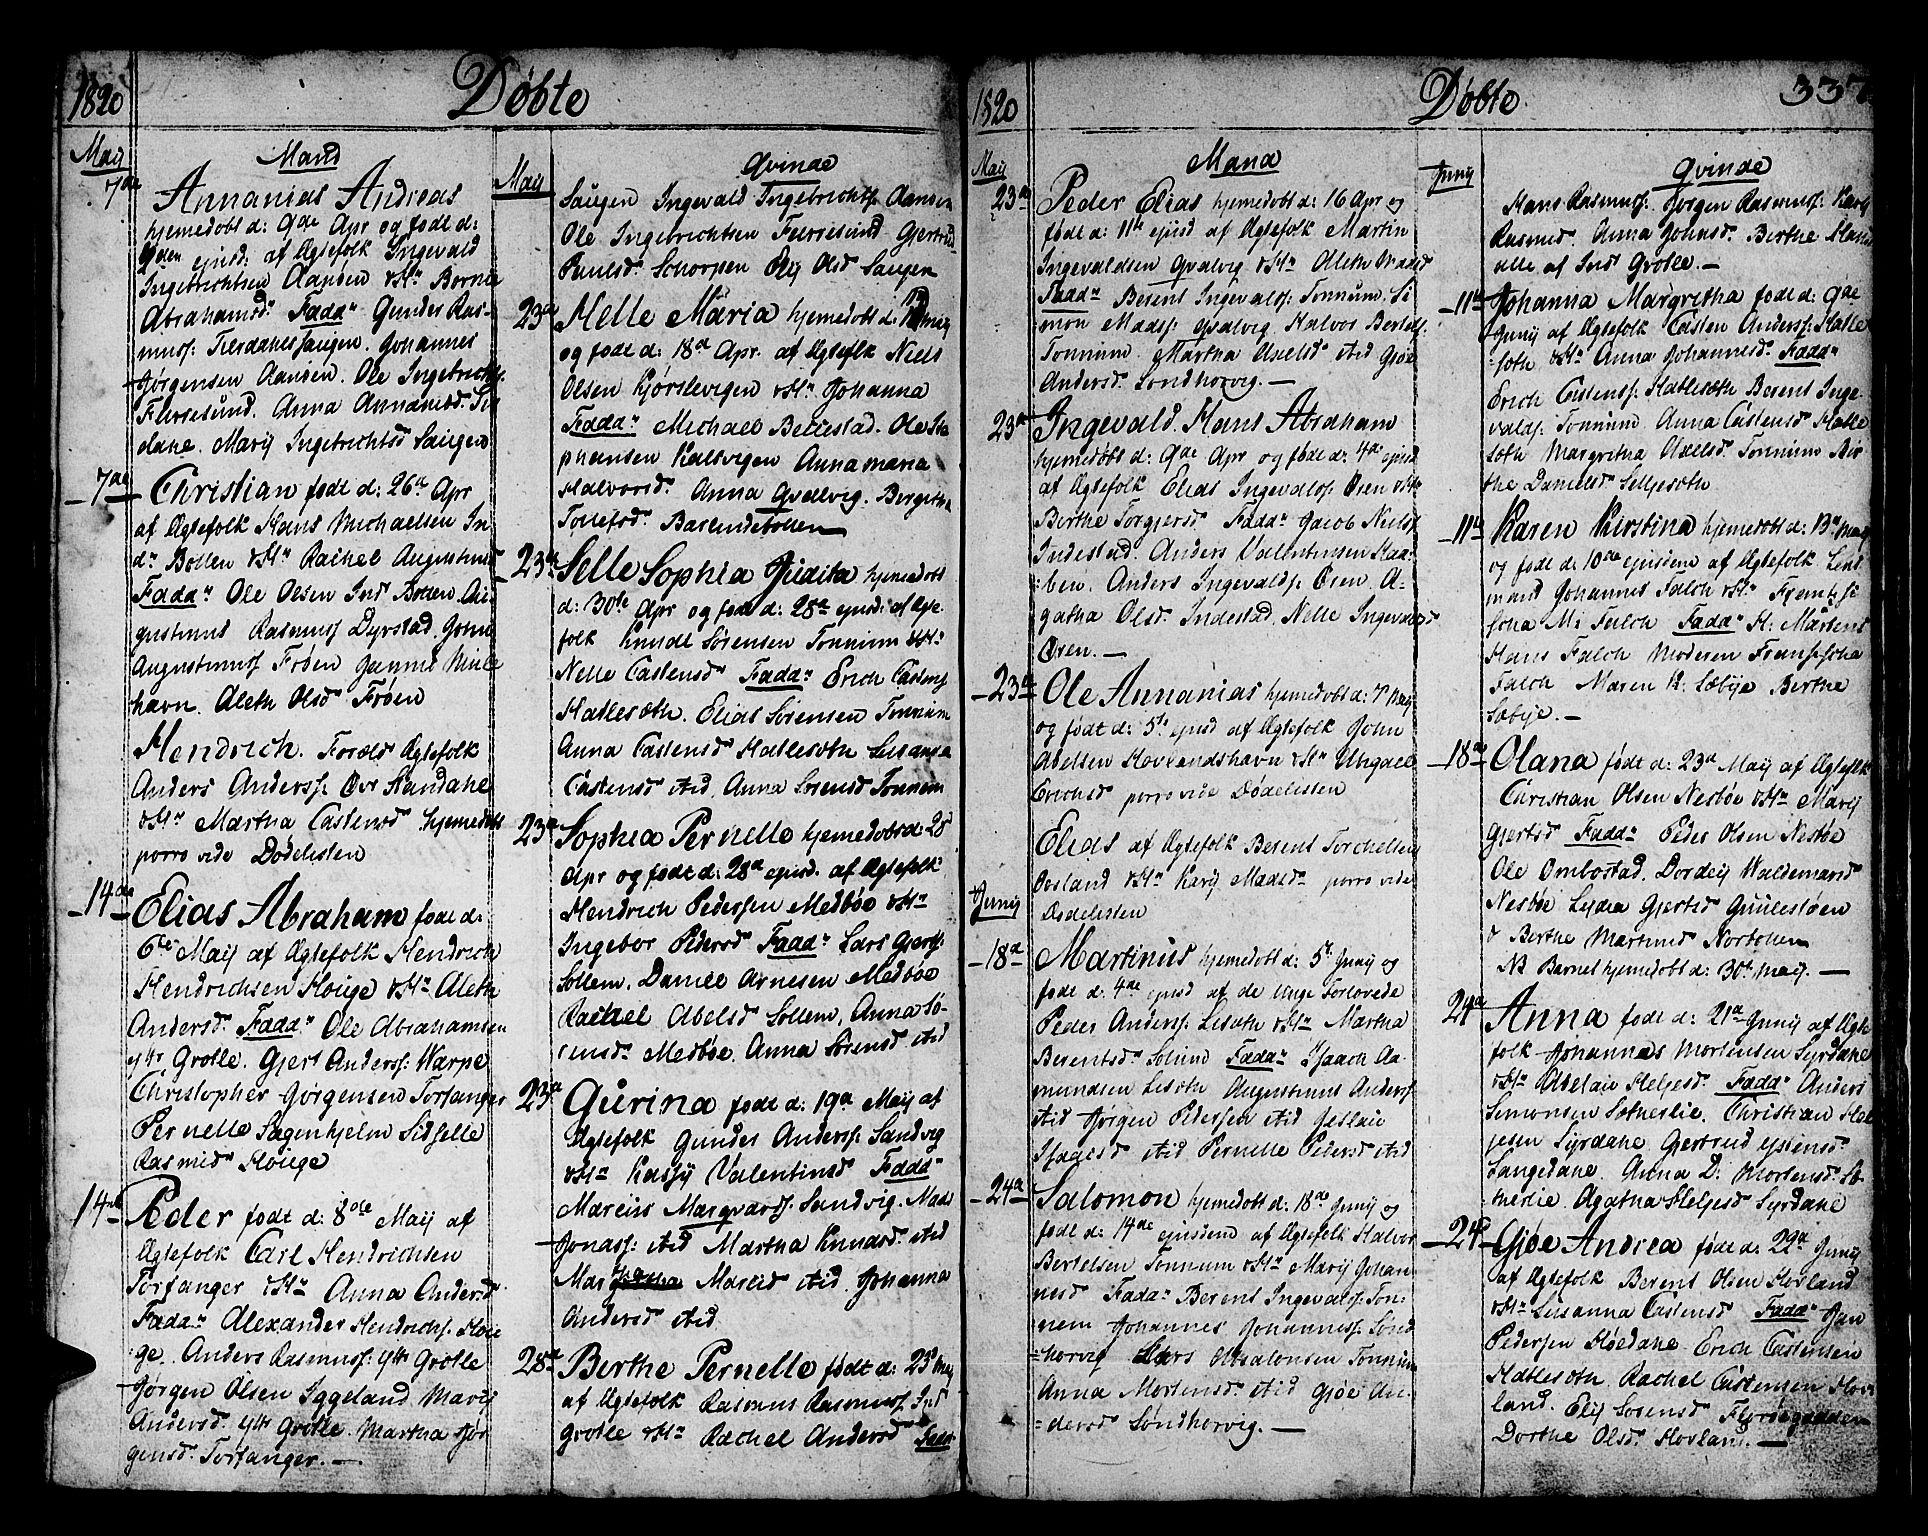 1820
Døbte
Maij
Mand
7de
Annanias Andreas
hjemedøbt d: 9de Apr og født d:
ejusd: af Ægtefolk Ingevald
Ingebrichtsen Aansen &H: Borna
Abrahamsd: Fadd: Gunder Ras-
muss: Johannes
Jørgensen Aansen. Ole Ingebrichts:
Furresund. Anna Annaniasd:
dahe. Marij Ingebrichtsd Saugen
7de
Christian født d: 26de Apr
af Ægtefolk Hans Michaelsen In
d: Botten &H: Rachel Augustinusd
Fadd: Ole Olsen Ind Botten. Au-
gustinus Rasmuss Dyrstad. John
Augustinuss Frøen Gamme
havn. Aleth Olsd Frøen
Hendrich. Foræld: Ægtefolk
Anders Anderss: Øvr Standahe
&H: Martha Castensd hjemedøbt
porro vide Dødelisten
14de
Elias Abraham født d:
6te Maij af Ægtefolk Hendrich
Hendrichsen Høige &H: Aleth
Andersd: Fadd: Ole Abrahamsen
ytr Grotle. Gjert Anderss: Warpe
Christopher Jørgensen Torfanger
Pernelle Sagenhjelm Sidselle
Rasmusd Høige
14de
Peder født d: 8de Maij af
Ægtefolk Carl Hendrichsen
Torfanger &H: Anna Andersd
Fadd: Alexander Hendrichs: Høi
ge. Anders Rasmuss: ytr Grotle
Jørgen Olsen Iggeland Marij
Andersd: ytr Grotle. Martha Jør
gensd: Torfanger. —
Maij
Qvinde
Saugen Ingevald Ingebrichts: Aansen
Ole Ingebrichtsen Furresund Gjertrud
Paulsd: Schorpen Olsd Saugen
23de
Helle Maria hjemedøbt d: Maij
og født d: 18de Apr. af Ægtefolk Niels
Olsen Kjørslevigen &H: Johanna
Fadd: Michael Bellestad. Ole Ste
phansen Kalsvigen Anna maria
Halvorsd: Anna Qvalvig. Bergitha
Tollefsd: Barlindbotten
23de
Selle Sophia Judita hjemedøbt
d: 30te Apr og født d: 28de ejusd: af Ægte-
folk Knudt Sørensen Tonnum &H:
Nelle Castensd Fadd: Erich Castens:
Hatlesæth. Elias Sørensen Tonnum
Anna Castensd Hatlesæth Lusanna
Castensd sted, Anna Sørensd Tonnum
23de
Sophia Pernelle hjemedøbt d: 28
Apr og født d: 28de ejusd. af Ægtefolk
Hendrich Pedersen Medbøe &H:
Ingebor Pedersd Fadd: Lars Gjerts:
Sollem. Daniel Arnesen Medbøe
Rachel Abelsd Sollem, Anna Sø-
rensd Medbøe. Anna Sørensd sted
23de
Gurina født d: 19de Maij af
Ægtefolk Gunder Anderss: Sandvig
&H: Valentinsd Fadd:
Marcus Marqvards: Sandvig. Mads
Jonass: sted Martha Knudsd: sted
Marcusd sted. Johanna
Andersd sted
28de
Berthe Pernelle født d: 23de Maij
af Ægtefolk Rasmus Rasmuss: Ind
Grotle &H: Rachel Andersd Fadd:
1820
Døbte
337
Maij
Mand
23de
Peder Elias hjemedøbt d: 16 Apr og
født d: 11te ejusd af Ægtefolk Martin
Ingevaldsen Qvalvig &H: Aleth Madsd
Fadd: Berent Ingevalds: Tonnum. Si
mon Madss: Qvalvig Halvor Bertels:
Tonnum. Martha Axelsd sted Gjøe
Andersd: Søndhorvig. —
23de
Ingevald. Hans Abraham
hjemedøbt d: 9de Apr og født d: 4de ejusd
af Ægtefolk Elias Ingevalds: Øren &H:
Berthe Torgjersd: Fadd: Jacob Niels:
Indestad. Anders Valentinsen Haa-
ben. Anders Ingevalds: Øren. A-
gatha Olsd: Indestad. Nelle Ingevaldsd
Øren. —
23de
Ole Annanias hjemedøbt d: 7de Maij
og født d: 5te ejusd af Ægtefolk John
Abelsen Hovlandshavn &H: Ungael
Erichsd porro vide Dødelisten
Elias af Ægtefolk Berent Torchelsen
Oosland &H: Karij Madsd: porro vide
Dødelisten
Junij
18de
Martinus hjemedøbt d: 5te Junij og
født d: 4de ejusd af de Unge Forlovede
Peder Anderss: Lisæth &H: Martha
Berentsd: Solund Fadd: Isaach Aa-
mundsen Lisæth Augustinus Anders:
sted Jørgen Pedersen sted Jeslau
Isaacsd sted Pernelle Pedersd sted
24de
Salomon hjemedøbt d: 18de Junij og
født d: 14de ejusdem af Ægtefolk Halvor
Bertelsen Tonnum &H: Marij Johan
nesd: Fadd: Berent Ingevalds: Ton-
nem Johannes Johannes: Sønd
horvig Lars Absalonsen Tonnum
Anna Mortensd: sted Gjøe An-
dersd Søndhorvig. —
Junij
Qvinde
Hans Rasmuss: Jørgen Rasmuss: Karij
Rasmusd. Anna Johnsd. Berthe
alle af Ind Grotle. —
11te
Johanna Margretha født d: 9de
Junij af Ægtefolk Casten Anderss: Hatle
sæth &H: Anna Johannesd: Fadd:
Erich Castens: Hatlesæth Berent Inge-
valds: Tonnum. Anna Castensd Hatle
sæth Margretha Axelsd: Tonnum Bir
the Danielsd Seljesæth
11te
Karen Kirstina hjemedøbt d: 13de Maij
og født d: 10de ejusdem af Ægtefolk
mand Johannes Falch &H:
M: Falch Fadd: H: Mårtens
Hans Falch Moderen Fransischa
Falch Maren K: Sæbye Berthe
Sæbye. —
18de
Olana født d: 23de Maij af Ægtefolk
Christian Olsen Nesbøe &H: Marij
Gjertsd Fadd: Peder Olsen Nesbøe
Ole Ombostad. Dordeij Waldemarsd
Nesbøe Lydia Gjertsd Gunlesøen
& Berthe Martinusd Norbotten
NB Barnet hjemedøbt d: 30te Maij. —
24de
Anna født d: 21de Junij af Ægte
folk Johannes Mortensen Syrdahe
&H: Abelau Heljesd: Fadd: Anders
Simonsen Sætherlie. Christian Hel
jesen Syrdahe Gjertrud
Langedahe. Anna D: Mortensd: Sæ-
therlie. Agatha Heljesd Syrdahe
24de
Gjøe Andrea født d: 22de Junij
af Ægtefolk Berent Olsen Hovland
&H: Lusanna Castensd Fadd: Jan
Pedersen Høidahe. Erich Castensen
Hatlesæth Rachel Castensen Hov
land. Elij Sørensd
Dorthe Olsd: Hovland. —